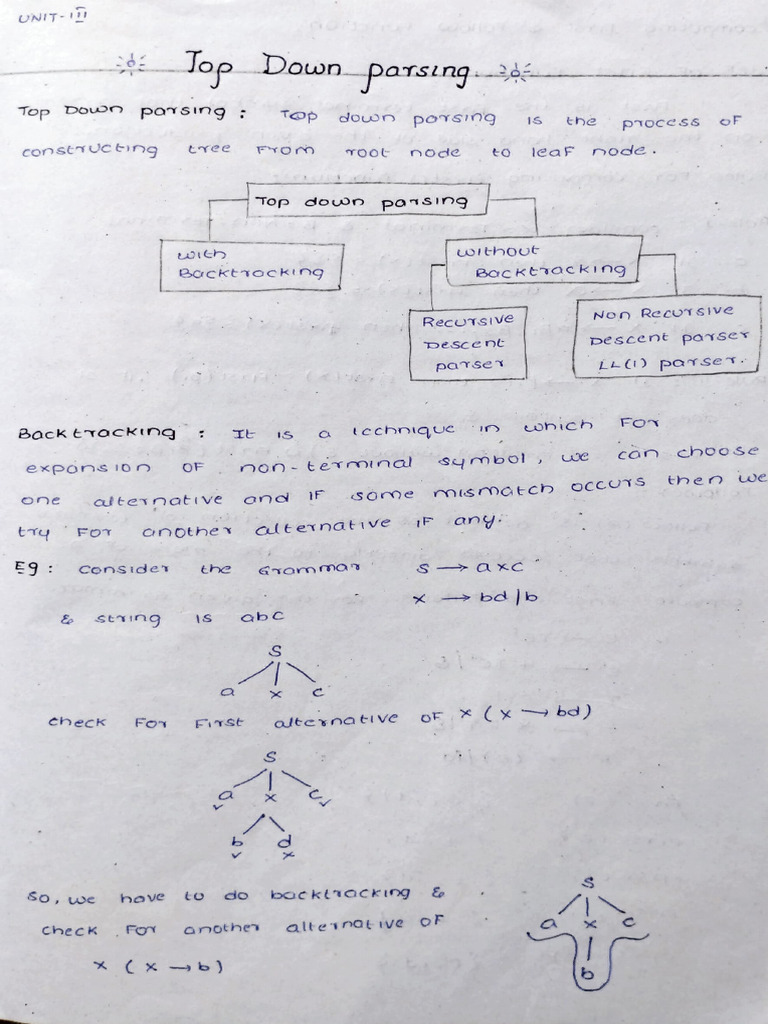 UNIT-III
Top Down parsing.
Top Down parsing : Top down parsing is the process of
constructing tree from root node to leaf node.
Top down parsing
with
Backtracking
without
Backtracking
Recursive
Descent
parser
Non Recursive
Descent parser
LL(1) parser.
Backtracking : It is a technique in which for
expansion of non-terminal symbol, we can choose
one alternative and if some mismatch occurs then we
try for another alternative if any.
Eg : consider the Grammar S → axc
x → bd | b
& string is abc
S
a x c
check for first alternative of x (x → bd)
S
a x c
b d
So, we have to do backtracking &
check for another alternative of
x (x → b)
S
a x c
b